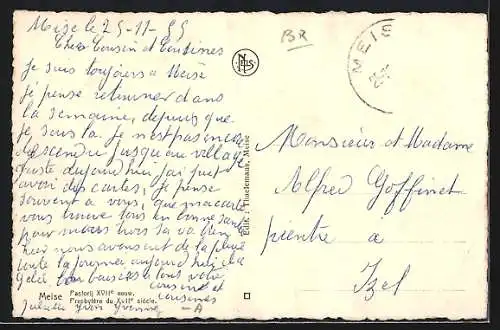 Meise le 25-11-55
Chers Cousin et Cousines
Je suis toujours à Meise
je pense retourner dans
la semaine, depuis que
je suis la. Je n'est pas encore
descendu jusqu'au village
juste aujourd'hui j'ai juste
avoir des cartes, je pense
souvent a vous, que ma carte
vous trouve tous en bonne santé
pour nous tous sa va bien
hier nous avons eut de la pluie
toute la journée aujourd'hui il a
Gelé bon baiser a tous votre
cousine et
cousines
Yvonne
Meise Pastorij XVIIe eeuw.
Presbytère du XVIIe siècle.
Edit.: Thuelemaux, Meise
NELS
BR
MEISE
Monsieur et Madame
Alfred Goffinet
peintre a
Izel